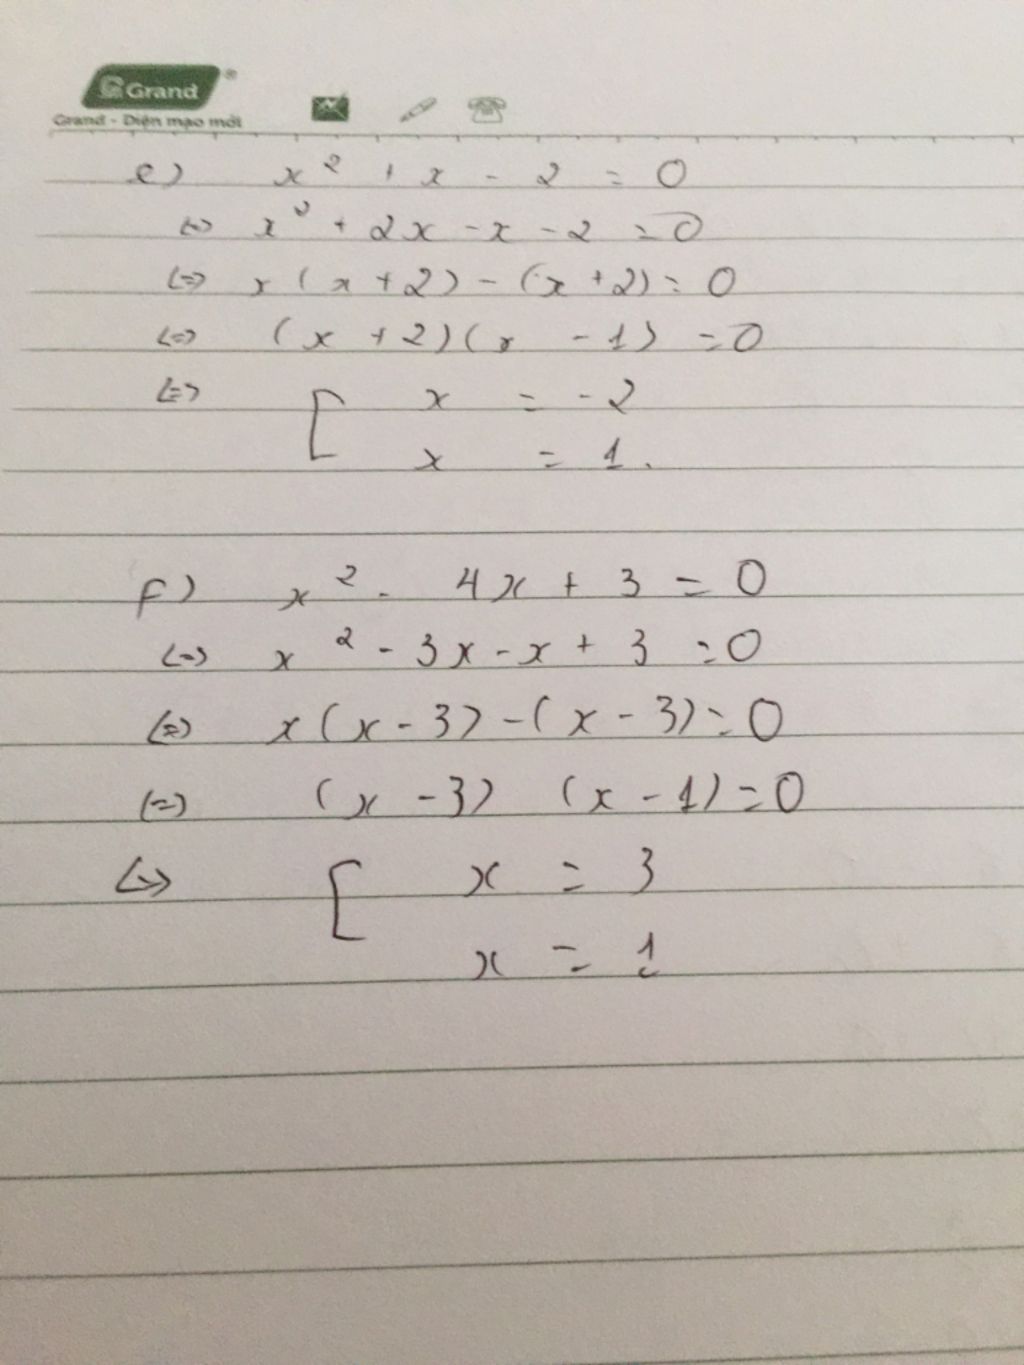 Grand
Grand - Diện mạo mới
e) x² + x - 2 = 0
<=> x² + 2x - x - 2 = 0
<=> x(x + 2) - (x + 2) = 0
<=> (x + 2)(x - 1) = 0
<=> [ x = -2
x = 1.
f) x² - 4x + 3 = 0
<=> x² - 3x - x + 3 = 0
<=> x(x - 3) - (x - 3) = 0
<=> (x - 3) (x - 1) = 0
<=> [ x = 3
x = 1